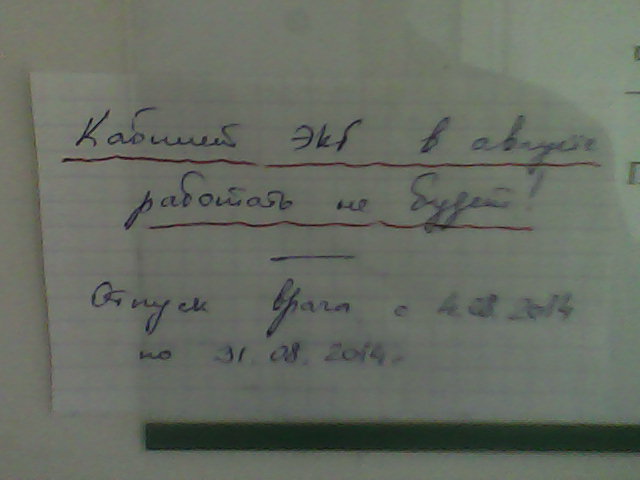 Кабинет ЭКГ в августе
работать не будет!
Отпуск врача с 4.08.2014
по 31.08.2014.